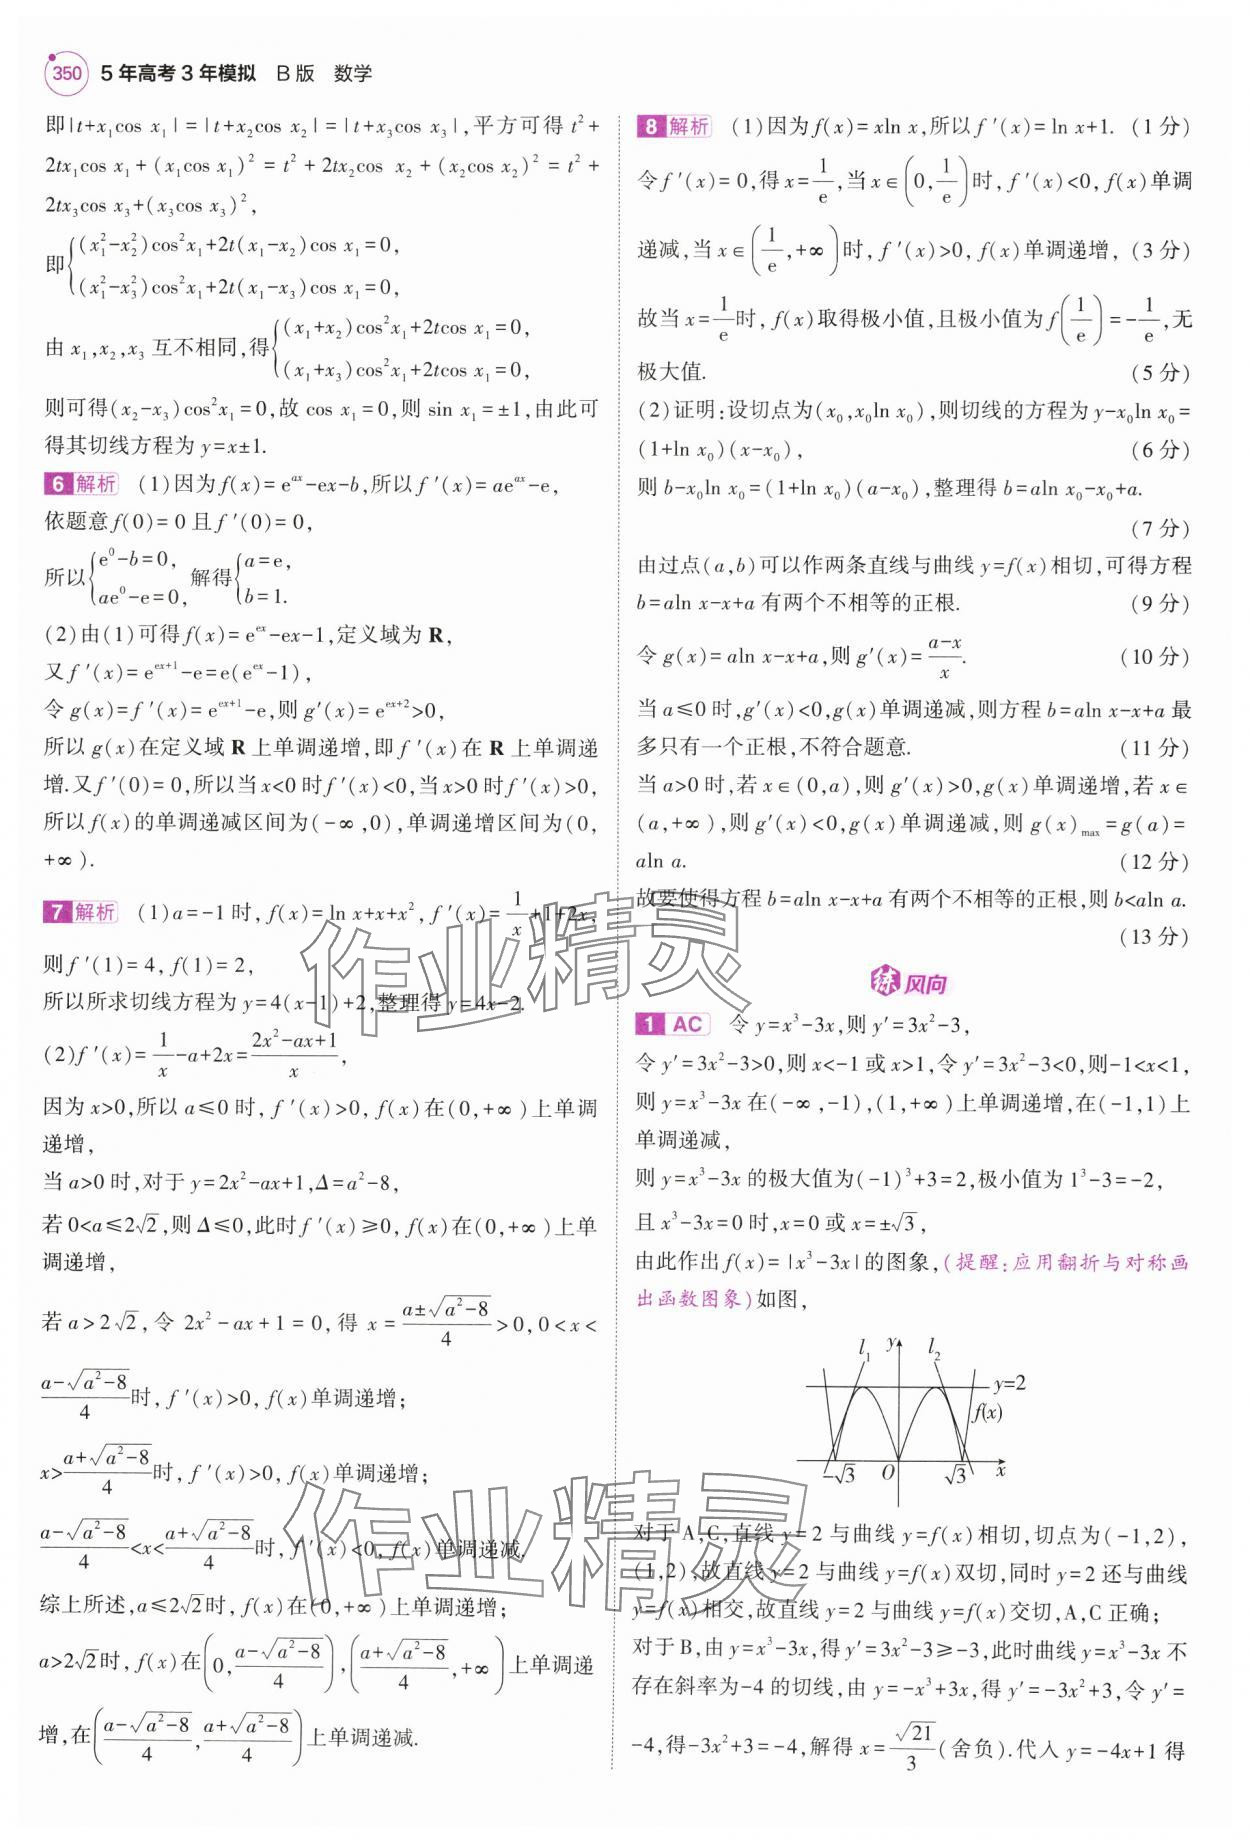 350 5年高考3年模拟 B版 数学
即|t+x₁cos x₁|=|t+x₂cos x₂|=|t+x₃cos x₃|,平方可得 t²+
2tx₁cos x₁+(x₁cos x₁)²=t²+2tx₂cos x₂+(x₂cos x₂)²=t²+
2tx₃cos x₃+(x₃cos x₃)²,
即{(x₁²-x₂²)cos²x₁+2t(x₁-x₂)cos x₁=0,
(x₁²-x₃²)cos²x₁+2t(x₁-x₃)cos x₁=0,
由 x₁,x₂,x₃ 互不相同,得{(x₁+x₂)cos²x₁+2tcos x₁=0,
(x₁+x₃)cos²x₁+2tcos x₁=0,
则可得(x₂-x₃)cos²x₁=0,故 cos x₁=0,则 sin x₁=±1,由此可
得其切线方程为 y=x±1.
6 解析 (1)因为f(x)=e^{ax}-ex-b,所以f′(x)=ae^{ax}-e,
依题意f(0)=0且f′(0)=0,
所以{e⁰-b=0, ae⁰-e=0, 解得{a=e, b=1.
(2)由(1)可得f(x)=e^{ex}-ex-1,定义域为 R,
又f′(x)=e^{ex+1}-e=e(e^{ex}-1),
令g(x)=f′(x)=e^{ex+1}-e,则g′(x)=e^{ex+2}>0,
所以g(x)在定义域 R 上单调递增,即f′(x)在 R 上单调递
增.又f′(0)=0,所以当x<0时f′(x)<0,当x>0时f′(x)>0,
所以f(x)的单调递减区间为(-∞,0),单调递增区间为(0,
+∞).
7 解析 (1)a=-1时,f(x)=ln x+x+x²,f′(x)=1/x+1+2x,
则f′(1)=4,f(1)=2,
所以所求切线方程为y=4(x-1)+2,整理得y=4x-2.
(2)f′(x)=1/x-a+2x=(2x²-ax+1)/x,
因为x>0,所以a≤0时,f′(x)>0,f(x)在(0,+∞)上单调
递增,
当a>0时,对于y=2x²-ax+1,Δ=a²-8,
若0<a≤2√2,则Δ≤0,此时f′(x)≥0,f(x)在(0,+∞)上单
调递增,
若a>2√2,令2x²-ax+1=0,得x=(a±√(a²-8))/4>0,0<x<
(a-√(a²-8))/4时,f′(x)>0,f(x)单调递增;
x>(a+√(a²-8))/4时,f′(x)>0,f(x)单调递增;
(a-√(a²-8))/4<x<(a+√(a²-8))/4时,f′(x)<0,f(x)单调递减.
综上所述,a≤2√2时,f(x)在(0,+∞)上单调递增;
a>2√2时,f(x)在(0,(a-√(a²-8))/4),((a+√(a²-8))/4,+∞)上单调递
增,在((a-√(a²-8))/4,(a+√(a²-8))/4)上单调递减.
8 解析 (1)因为f(x)=xln x,所以f′(x)=ln x+1. (1分)
令f′(x)=0,得x=1/e,当x∈(0,1/e)时,f′(x)<0,f(x)单调
递减,当x∈(1/e,+∞)时,f′(x)>0,f(x)单调递增, (3分)
故当x=1/e时,f(x)取得极小值,且极小值为f(1/e)=-1/e,无
极大值. (5分)
(2)证明:设切点为(x₀,x₀ln x₀),则切线的方程为y-x₀ln x₀=
(1+ln x₀)(x-x₀), (6分)
则b-x₀ln x₀=(1+ln x₀)(a-x₀),整理得b=aln x₀-x₀+a.
(7分)
由过点(a,b)可以作两条直线与曲线y=f(x)相切,可得方程
b=aln x-x+a有两个不相等的正根. (9分)
令g(x)=aln x-x+a,则g′(x)=(a-x)/x. (10分)
当a≤0时,g′(x)<0,g(x)单调递减,则方程b=aln x-x+a最
多只有一个正根,不符合题意. (11分)
当a>0时,若x∈(0,a),则g′(x)>0,g(x)单调递增,若x∈
(a,+∞),则g′(x)<0,g(x)单调递减,则g(x)max=g(a)=
aln a. (12分)
故要使得方程b=aln x-x+a有两个不相等的正根,则b<aln a.
(13分)
练风向
1 AC 令y=x³-3x,则y′=3x²-3,
令y′=3x²-3>0,则x<-1或x>1,令y′=3x²-3<0,则-1<x<1,
则y=x³-3x在(-∞,-1),(1,+∞)上单调递增,在(-1,1)上
单调递减,
则y=x³-3x的极大值为(-1)³+3=2,极小值为1³-3=-2,
且x³-3x=0时,x=0或x=±√3,
由此作出f(x)=|x³-3x|的图象,(提醒:应用翻折与对称画
出函数图象)如图,
l₁ y l₂
y=2
f(x)
-√3 O √3 x
对于A,C,直线y=2与曲线y=f(x)相切,切点为(-1,2),
(1,2),故直线y=2与曲线y=f(x)双切,同时y=2还与曲线
y=f(x)相交,故直线y=2与曲线y=f(x)交切,A,C正确;
对于B,由y=x³-3x,得y′=3x²-3≥-3,此时曲线y=x³-3x不
存在斜率为-4的切线,由y=-x³+3x,得y′=-3x²+3,令y′=
-4,得-3x²+3=-4,解得x=√21/3(舍负).代入y=-4x+1得
作业精灵
作业精灵